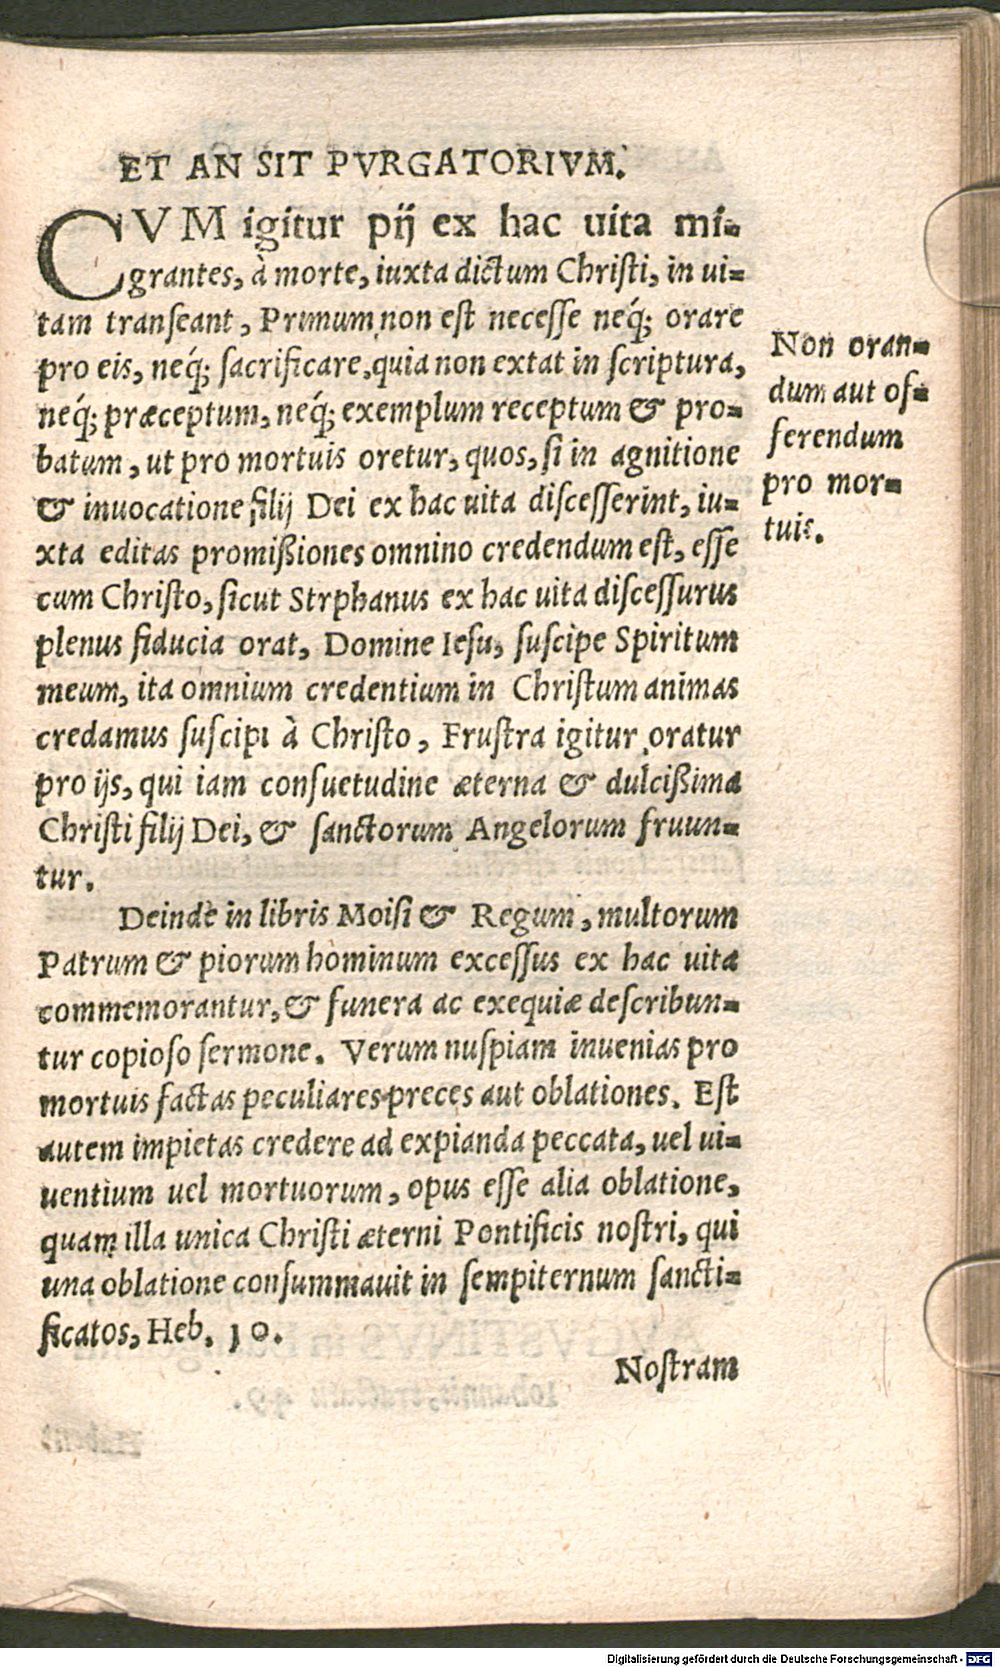 ET AN SIT PVRGATORIVM.
CVM igitur pij ex hac uita mi-
grantes, à morte, iuxta dictum Christi, in ui-
tam transeant, Primum non est necesse neq́; orare
pro eis, neq́; sacrificare, quia non extat in scriptura,
neq́; præceptum, neq́; exemplum receptum & pro-
batum, ut pro mortuis oretur, quos, si in agnitione
& inuocatione filij Dei ex hac uita discesserint, iu-
xta editas promißiones omnino credendum est, esse
cum Christo, sicut Strphanus ex hac uita discessurus
plenus fiducia orat, Domine Iesu, suscipe Spiritum
meum, ita omnium credentium in Christum animas
credamus suscipi à Christo, Frustra igitur oratur
pro ijs, qui iam consuetudine æterna & dulcißima
Christi filij Dei, & sanctorum Angelorum fruun-
tur.
Non oran-
dum aut of-
ferendum
pro mor-
tuis.
Deinde in libris Moisi & Regum, multorum
Patrum & piorum hominum excessus ex hac uita
commemorantur, & funera ac exequiæ describun-
tur copioso sermone. Verum nuspiam inuenias pro
mortuis factas peculiares preces aut oblationes. Est
autem impietas credere ad expianda peccata, uel ui-
uentium uel mortuorum, opus esse alia oblatione,
quam illa unica Christi æterni Pontificis nostri, qui
una oblatione consummauit in sempiternum sancti-
ficatos, Heb. 10.
Nostram
Digitalisierung gefördert durch die Deutsche Forschungsgemeinschaft - DFG